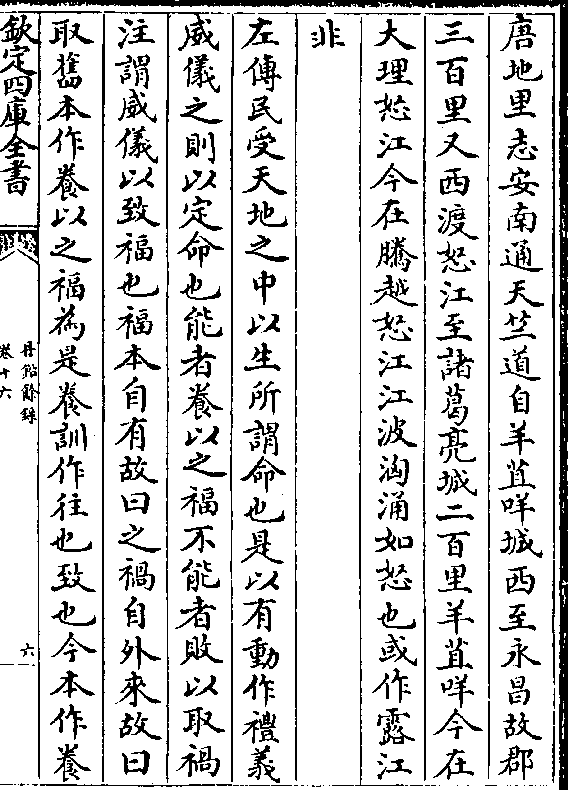 唐地里志安南通天竺道自羊苴咩城西至永昌故郡
三百里又西渡怒江至諸葛亮城二百里羊苴咩今在
大理怒江今在騰越怒江江波洶涌如怒也或作露江
非
左傳民受天地之中以生所謂命也是以有動作禮義
威儀之則以定命也能者養以之福不能者敗以取禍
注謂威儀以致福也福本自有故曰之禍自外來故曰
取舊本作養以之福為是養訓作往也致也今本作養
欽定四庫全書
丹鉛餘錄
卷十六
六